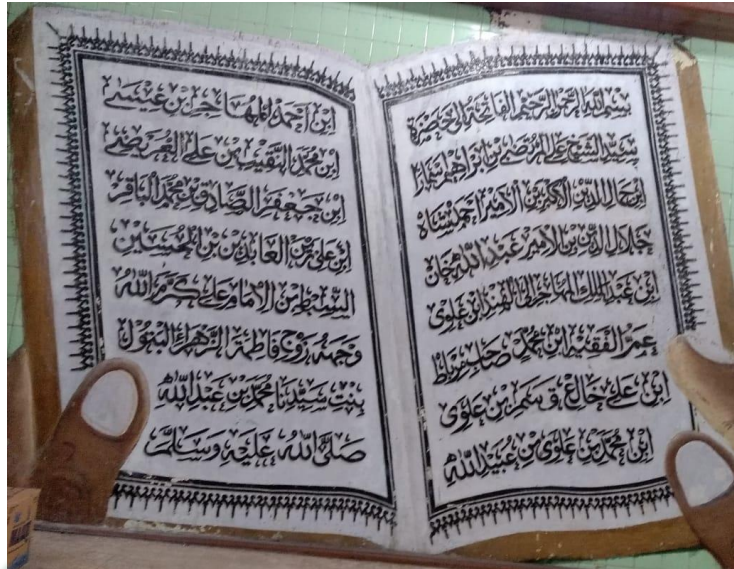 بسم الله الرحمن الرحيم الفاتحة الى حضرة
سيد الشيخ علي المرتضى بن ابراهيم اسمارا
ابن جمال الدين الاكبر بن الامير احمد شاه
جلال الدين بن الامير عبد الله خان
ابن عبد الملك المهاجر الى الهند ابن علوي
عم الفقيه ابن محمد صاحب مرباط
ابن علي خالع قسم بن علوي
ابن محمد بن علوي بن عبيد الله
ابن احمد المهاجر ابن عيسى
ابن محمد النقيب بن علي العريضي
ابن جعفر الصادق بن محمد الباقر
ابن علي زين العابدين بن الحسين
السبط بن الامام علي كرم الله
وجهه زوج فاطمة الزهراء البتول
بنت سيدنا محمد بن عبد الله
صَلَّى اللهُ عَلَيْهِ وَسَلَّم